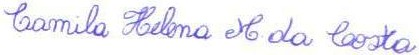 Camila Helena M. da Costa